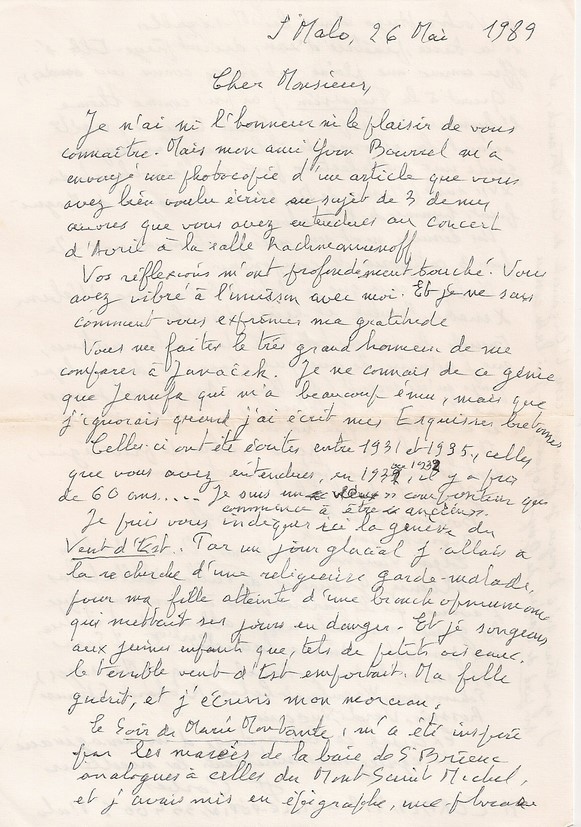 St Malo, 26 Mai 1989
Cher Monsieur,
Je n'ai ni l'honneur ni le plaisir de vous
connaître. Mais mon ami Yvon Bourrel m'a
envoyé une photocopie d'un article que vous
avez bien voulu écrire au sujet de 3 de mes
œuvres que vous avez entendues au concert
d'Avril à la salle Rachmanninoff
Vos réflexions m'ont profondément touché. Vous
avez vibré à l'unisson avec moi. Et je ne sais
comment vous exprimer ma gratitude
Vous me faites le très grand honneur de me
comparer à Janaček. Je ne connais de ce génie
que Jenufa qui m'a beaucoup ému, mais que
j'ignorais quand j'ai écrit mes Esquisses bretonnes
Celles-ci ont été écrites entre 1931 et 1935, celles
que vous avez entendues, en 1931 ou 1932, il y a près
de 60 ans.... Je suis un compositeur qui
commence à être « ancien ».
Je puis vous indiquer ici la genèse du
Vent d'Est. Par un jour glacial j'allais à
la recherche d'une religieuse garde-malade,
pour ma fille atteinte d'une bronchopneumonie
qui mettait ses jours en danger. Et je songeais
aux jeunes enfants que, tels de petits oiseaux,
le terrible vent d'Est emportait. Ma fille
guérit, et j'écrivis mon morceau.
Le Soir de Marée Montante, m'a été inspiré
par les marées de la baie de St Brieuc
analogues à celles du Mont Saint Michel,
et j'avais mis en épigraphe, une phrase